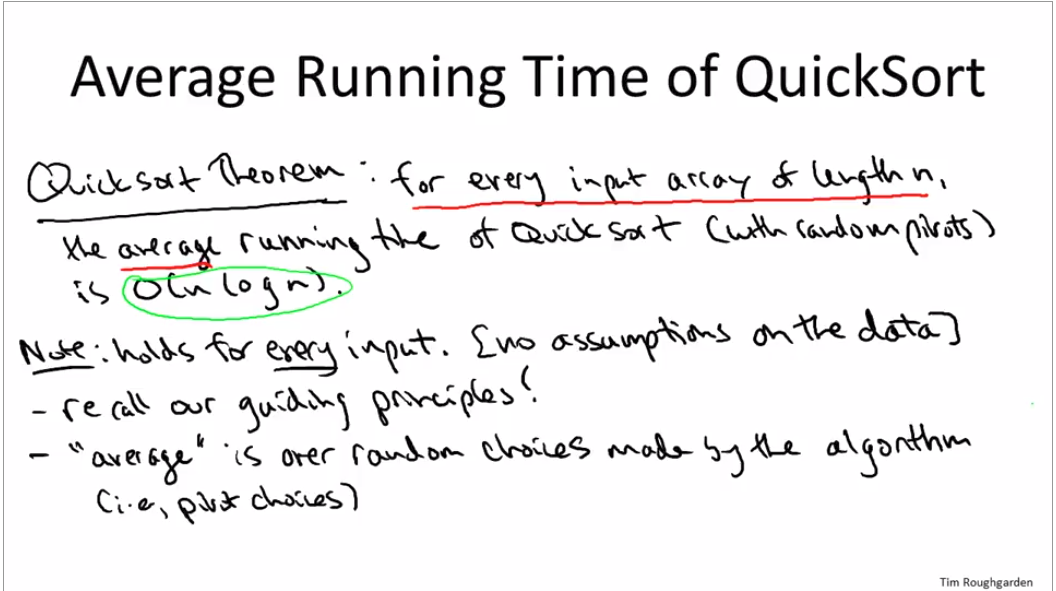 Average Running Time of QuickSort
Quicksort Theorem: for every input array of length n,
the average running time of QuickSort (with random pivots)
is O(n log n).
Note: holds for every input. [no assumptions on the data]
- recall our guiding principles!
- "average" is over random choices made by the algorithm
(i.e., pivot choices)
Tim Roughgarden